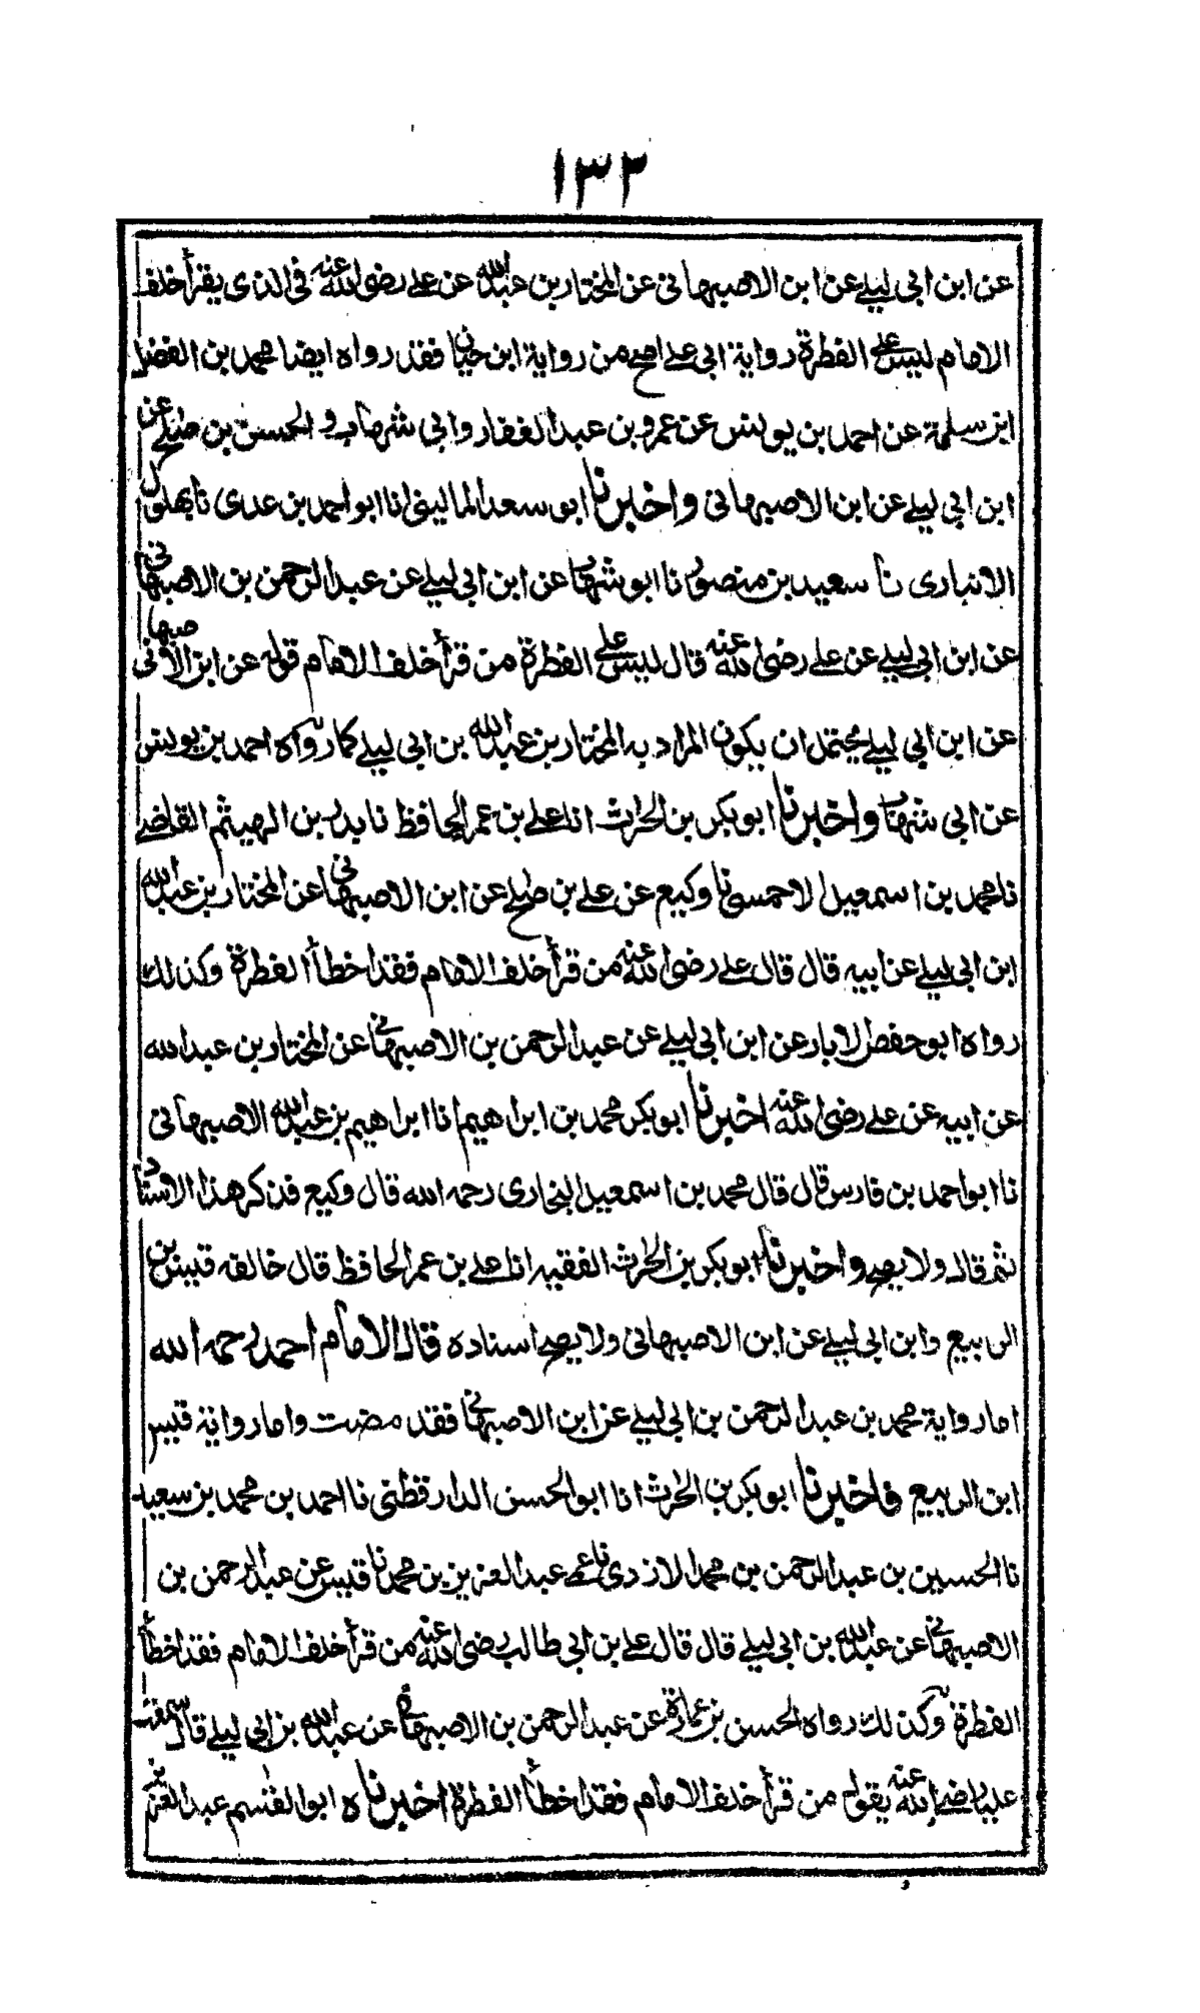 ١٣٢
عن ابن ابى ليلے عن ابن الاصبهانى عن المختار بن عبدالله عن علے رضى الله عنه فى الذى يقرأ خلف
الامام ليس على الفطرة رواية ابى علے اصح من رواية ابن حيان فقد رواه ايضا محمد بن الفضل
ابن سلمة عن احمد بن يونس عن عمرو بن عبدالغفار وابى شهاب والحسن بن صلح عن
ابن ابى ليلے عن ابن الاصبهانى واخبرنا ابو سعد المالينى انا ابو احمد بن عدى نا بهلول
الانبارى نا سعيد بن منصور نا ابو شهاب عن ابن ابى ليلے عن عبدالرحمن بن الاصبهانى
عن ابن ابى ليلے عن علے رضى الله عنه قال ليس على الفطرة من قرأ خلف الامام قوله عن ابن الاصبهانى
عن ابن ابى ليلے يحتمل ان يكون المراد به المختار بن عبدالله بن ابى ليلے كما رواه احمد بن يونس
عن ابى شهاب واخبرنا ابو بكر بن الحرث انا علے بن عمر الحافظ نا بدر بن الهيثم القاضے
نا محمد بن اسمعيل الاحمسى نا وكيع عن علے بن صلح عن ابن الاصبهانى عن المختار بن عبدالله
ابن ابى ليلے عن ابيه قال قال علے رضى الله عنه من قرأ خلف الامام فقد اخطأ الفطرة وكذلك
رواه ابو حفص الابار عن ابن ابى ليلے عن عبدالرحمن بن الاصبهانى عن المختار بن عبدالله
عن ابيه عن علے رضى الله عنه اخبرنا ابو بكر محمد بن ابراهيم انا ابراهيم بن عبدالله الاصبهانى
نا ابو احمد بن فارس قال قال محمد بن اسمعيل البخارى رحمه الله قال وكيع فذكر هذا الاسناد
ثم قال ولا يصح واخبرنا ابو بكر بن الحرث الفقيه انا علے بن عمر الحافظ قال خالفه قيس بن
الربيع وابن ابى ليلے عن ابن الاصبهانى ولا يصح اسناده قال الامام احمد رحمه الله
اما رواية محمد بن عبدالرحمن بن ابى ليلے عن ابن الاصبهانى فقد مضت واما رواية قيس
ابن الربيع فاخبرنا ابو بكر بن الحرث انا ابو الحسن الدارقطنى نا احمد بن محمد بن سعيد
نا الحسين بن عبدالرحمن بن محمد الازدى نا عمے عبدالعزيز بن محمد نا قيس عن عبدالرحمن بن
الاصبهانى عن عبدالله بن ابى ليلے قال قال علے بن ابى طالب رضى الله عنه من قرأ خلف الامام فقد اخطأ
الفطرة وكذلك رواه الحسن بن عمارة عن عبدالرحمن بن الاصبهانى عن عبدالله بن ابى ليلے قال سمعت
عليا رضے الله عنه يقول من قرأ خلف الامام فقد اخطأ الفطرة اخبرناه ابو القسم عبدالعزيز